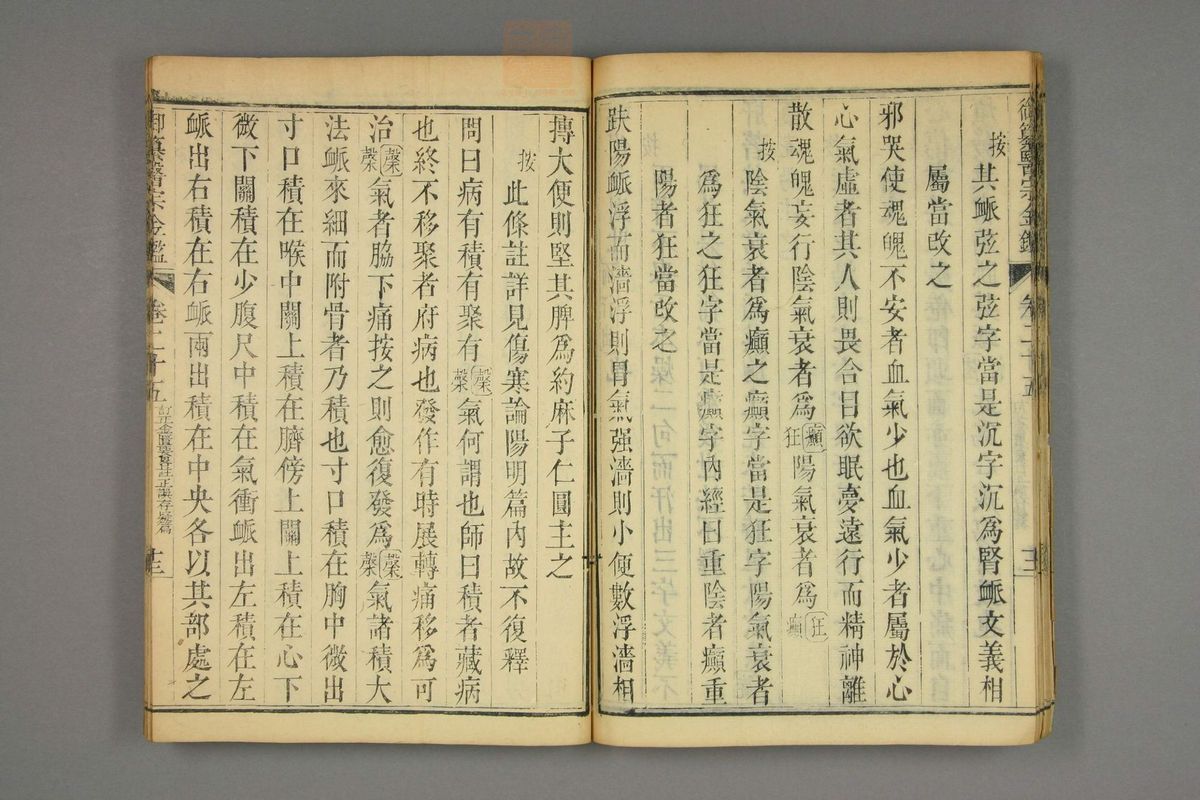 御纂醫宗金鑑 卷二十五 十三
按其衇弦之弦字當是沉字沉為腎衇文義相
屬當改之
邪哭使魂魄不安者血氣少也血氣少者屬於心
心氣虛者其人則畏合目欲眠夢遠行而精神離
散魂魄妄行陰氣衰者爲癲狂陽氣衰者爲狂癲
按陰氣衰者爲癲之癲字當是狂字陽氣衰者
爲狂之狂字當是癲字內經曰重陰者癲重
陽者狂當改之
趺陽衇浮而濇浮則胃氣强濇則小便數浮濇相
摶大便則堅其脾爲約麻子仁圓主之
按此條註詳見傷寒論陽明篇內故不復釋
問曰病有積有聚有䅽穀氣何謂也師曰積者藏病
也終不移聚者府病也發作有時展轉痛移爲可
治䅽穀氣者脇下痛按之則愈復發爲䅽穀氣諸積大
法衇來細而附骨者乃積也寸口積在胸中微出
寸口積在喉中關上積在臍傍上關上積在心下
微下關積在少腹尺中積在氣衝衇出左積在左
衇出右積在右衇兩出積在中央各以其部處之
御纂醫宗金鑑 卷二十五 訂正金匱要畧註正誤存疑篇 十三